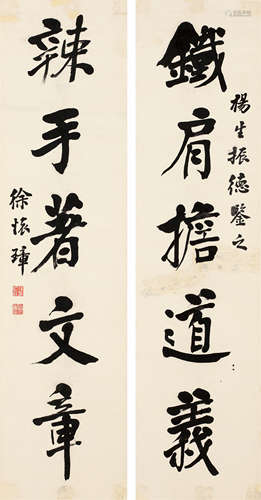 楊生振德鑒之
鐵肩擔道義
辣手著文章
徐悵璋